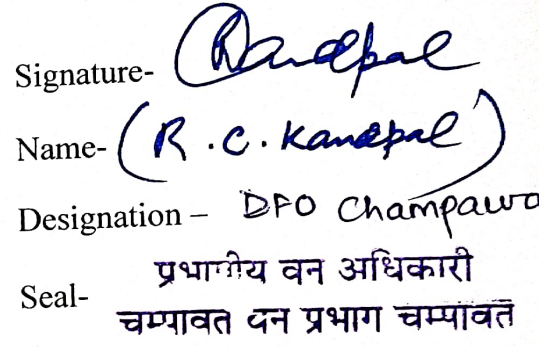 Signature- RKandpal
Name- (R.C. Kandpal)
Designation – DFO Champawa
Seal- प्रभागीय वन अधिकारी
चम्पावत वन प्रभाग चम्पावत